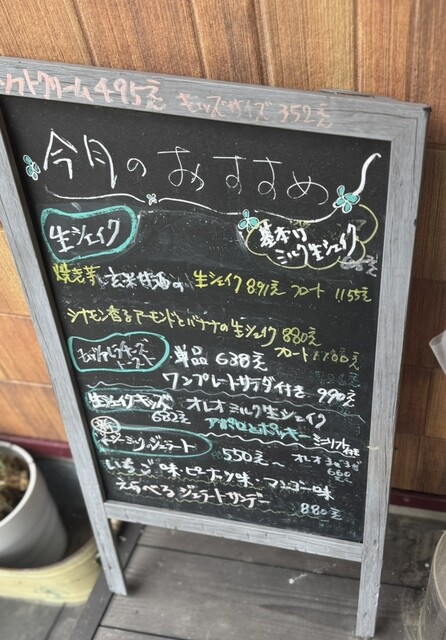 ソフトクリーム 495え キッズサイズ 352え
今月のおすすめ
生シェイク
基本の
ミルク生シェイク
焼き芋と玄米甘酒の 生シェイク 891え フロート 1155え
シナモン香るアーモンドとバナナの生シェイク 880え
フロート
単品 638え
ワンプレートサラダ付き 990え
生シェイクキッズ オレオミルク生シェイク
682え アポロとポッキー
ジェラート 550え〜
いちご味・ピーナツ味・マンゴー味
えらべるジェラートサンデー 880え